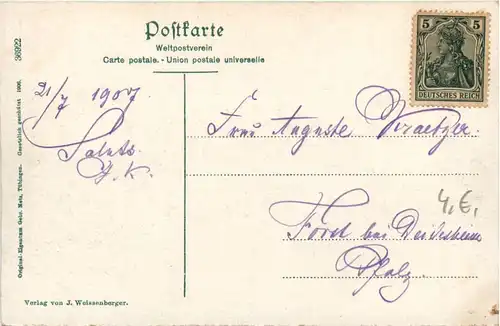 Postkarte
Weltpostverein
Carte postale. - Union postale universelle
5 5
DEUTSCHES REICH
36922
Original-Eigentum Gebr. Metz, Tübingen. Gesetzlich geschützt 1906.
21/7 1907
Saluts
J. K.
Frau Auguste Kraetzer
Forst bei Deidesheim
Pfalz.
4,E,
Verlag von J. Weissenberger.